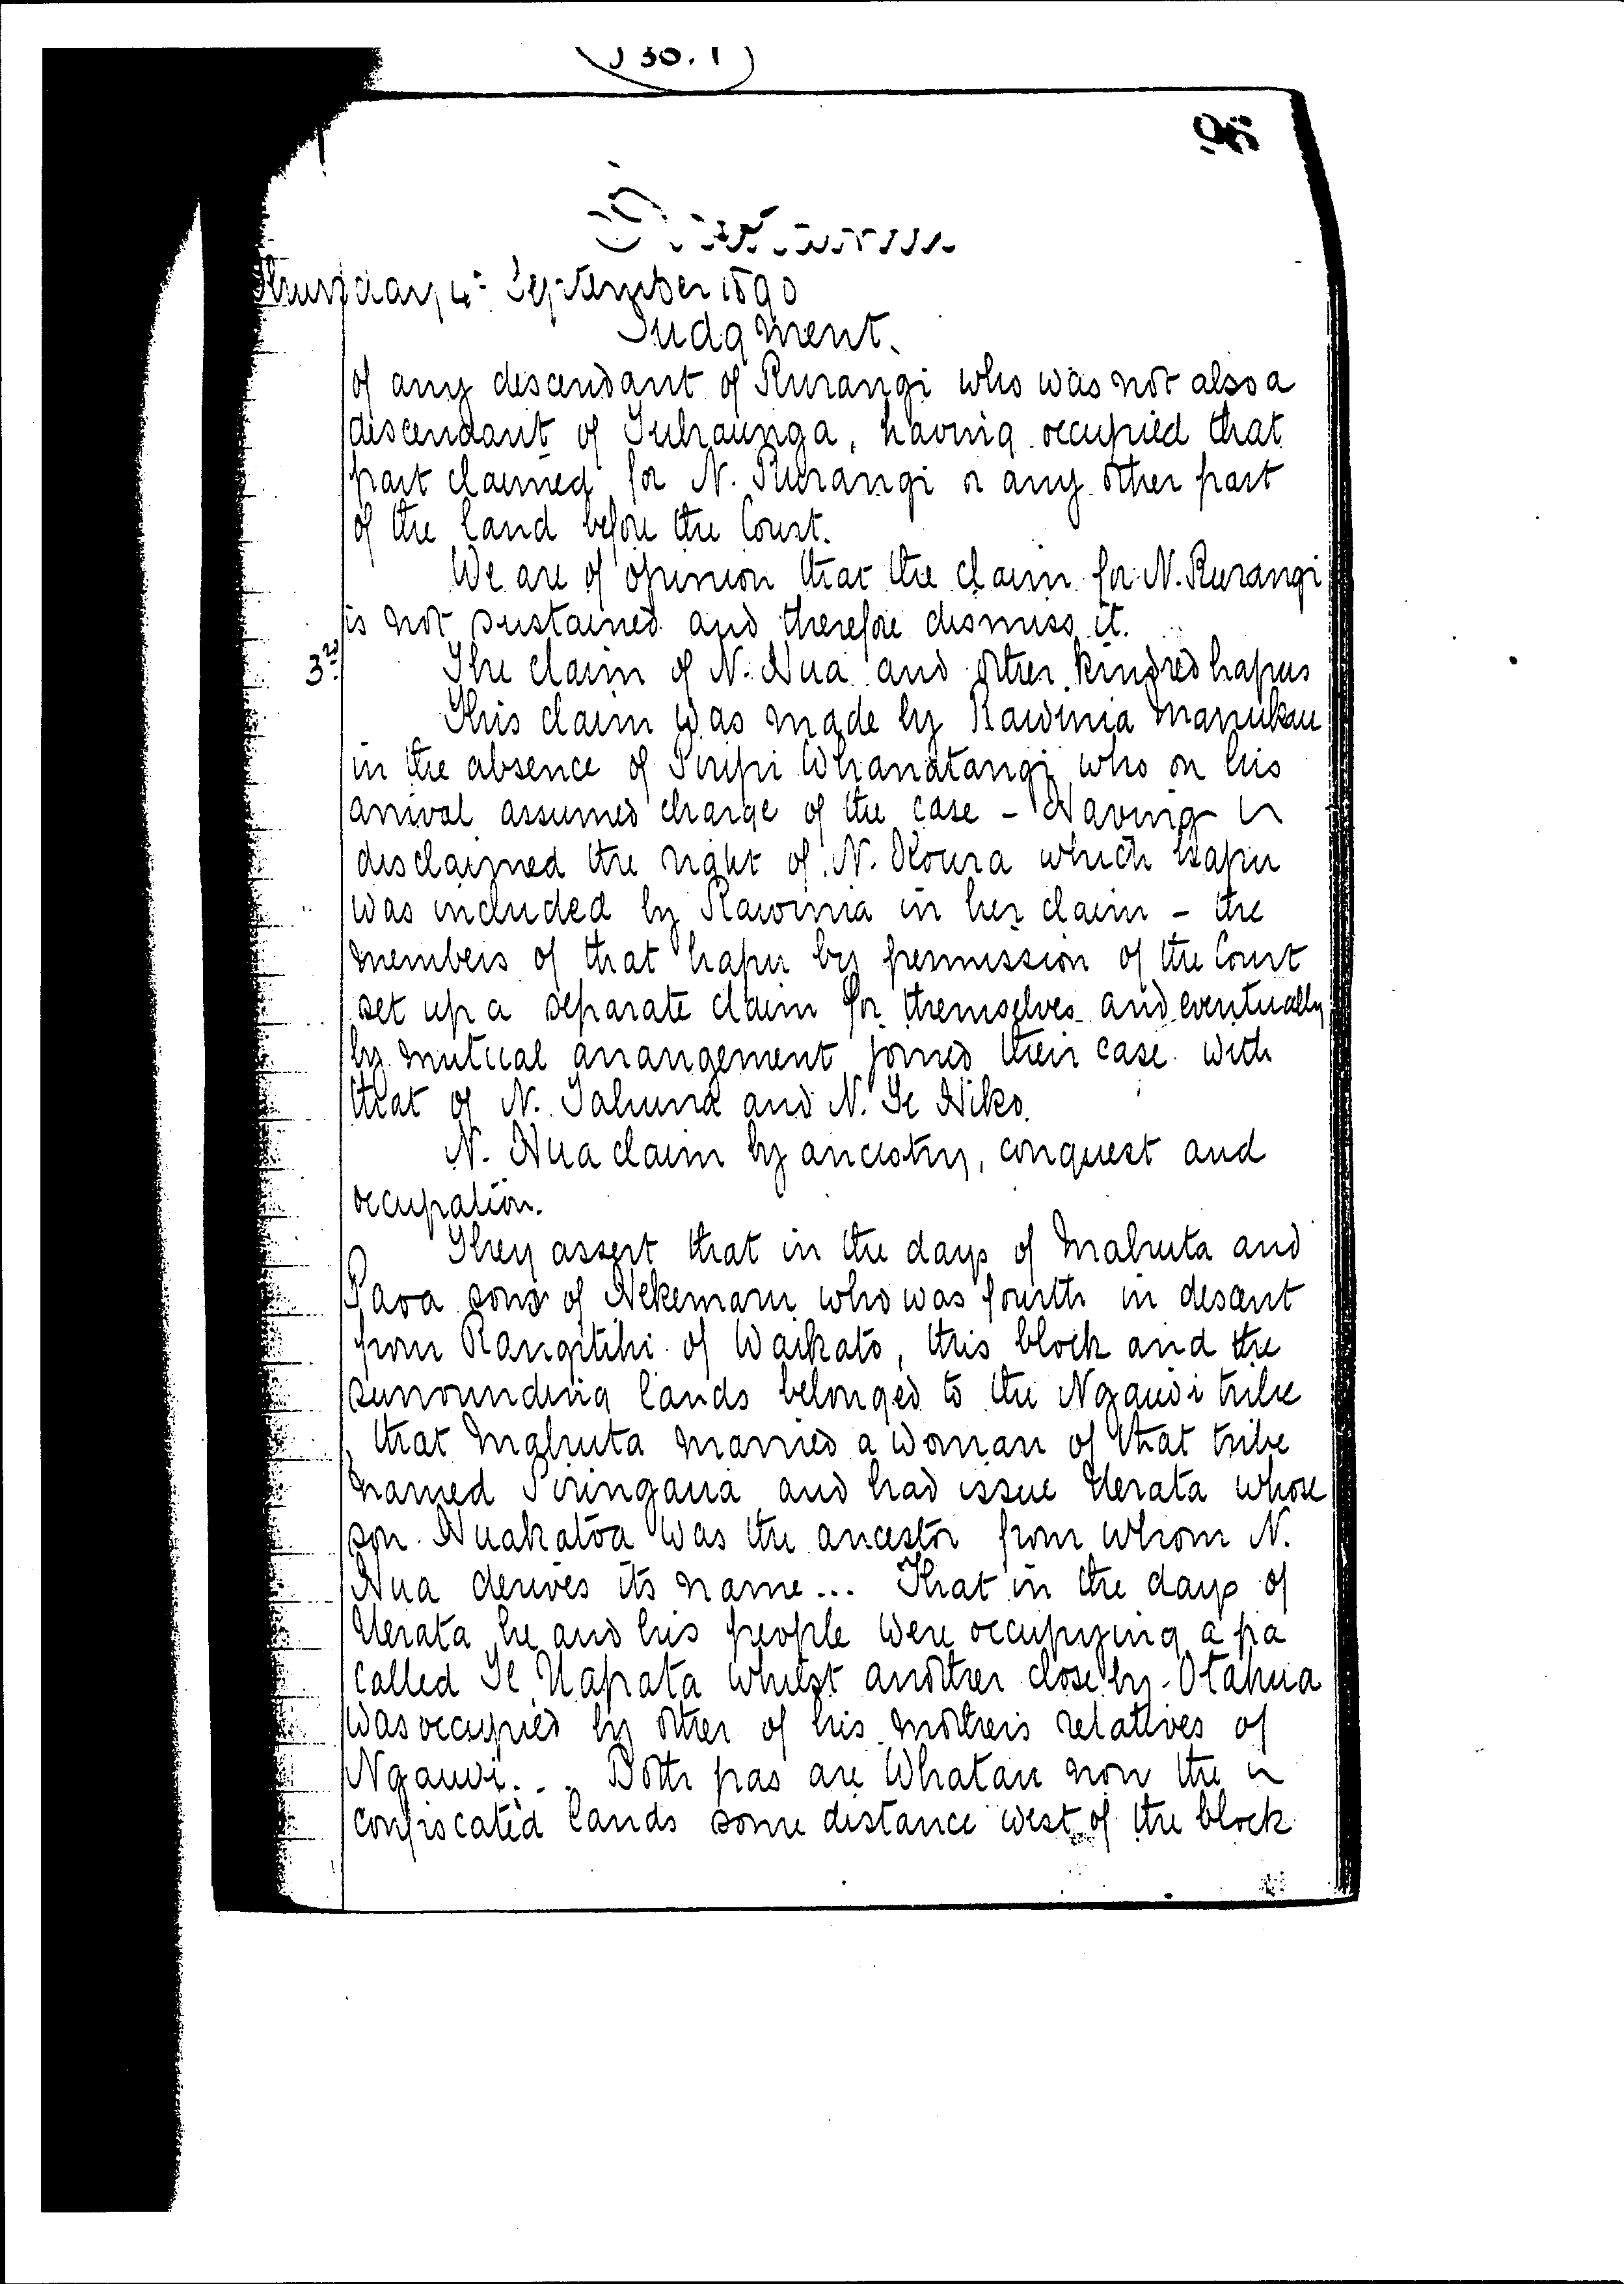 98
Thursday 4th September 1890
Judgment.
of any descendant of Rurangi who was not also a
descendant of Tuhaunga, having occupied that
part claimed for N. Rurangi or any other part
of the land before the Court.
We are of opinion that the claim for N. Rurangi
is not sustained and therefore dismiss it.
3rd
The claim of N. Hua and other kindred hapus
This claim was made by Rawinia Manukau
in the absence of Piripi Whanatangi who on his
arrival assumed charge of the case - Having
disclaimed the right of N. Koura which hapu
was included by Rawinia in her claim - the
members of that hapu by permission of the Court
set up a separate claim for themselves and eventually
by mutual arrangement joined their case with
that of N. Tahuna and N. Te Hiko.
N. Hua claim by ancestry, conquest and
occupation.
They assert that in the days of Mahuta and
Paoa sons of Hekemaru who was fourth in descent
from Rangitihi of Waikato, this block and the
surrounding lands belonged to the Ngauwi tribe
that Mahuta married a woman of that tribe
named Piringaua and had issue Uerata whose
son Huakatoa was the ancestor from whom N.
Hua derives its name... That in the days of
Uerata he and his people were occupying a pa
called Te Uapata whilst another close by - Otahua
was occupied by other of his mother's relatives of
Ngauwi... Both pas are Whatau now the
confiscated lands some distance west of the block